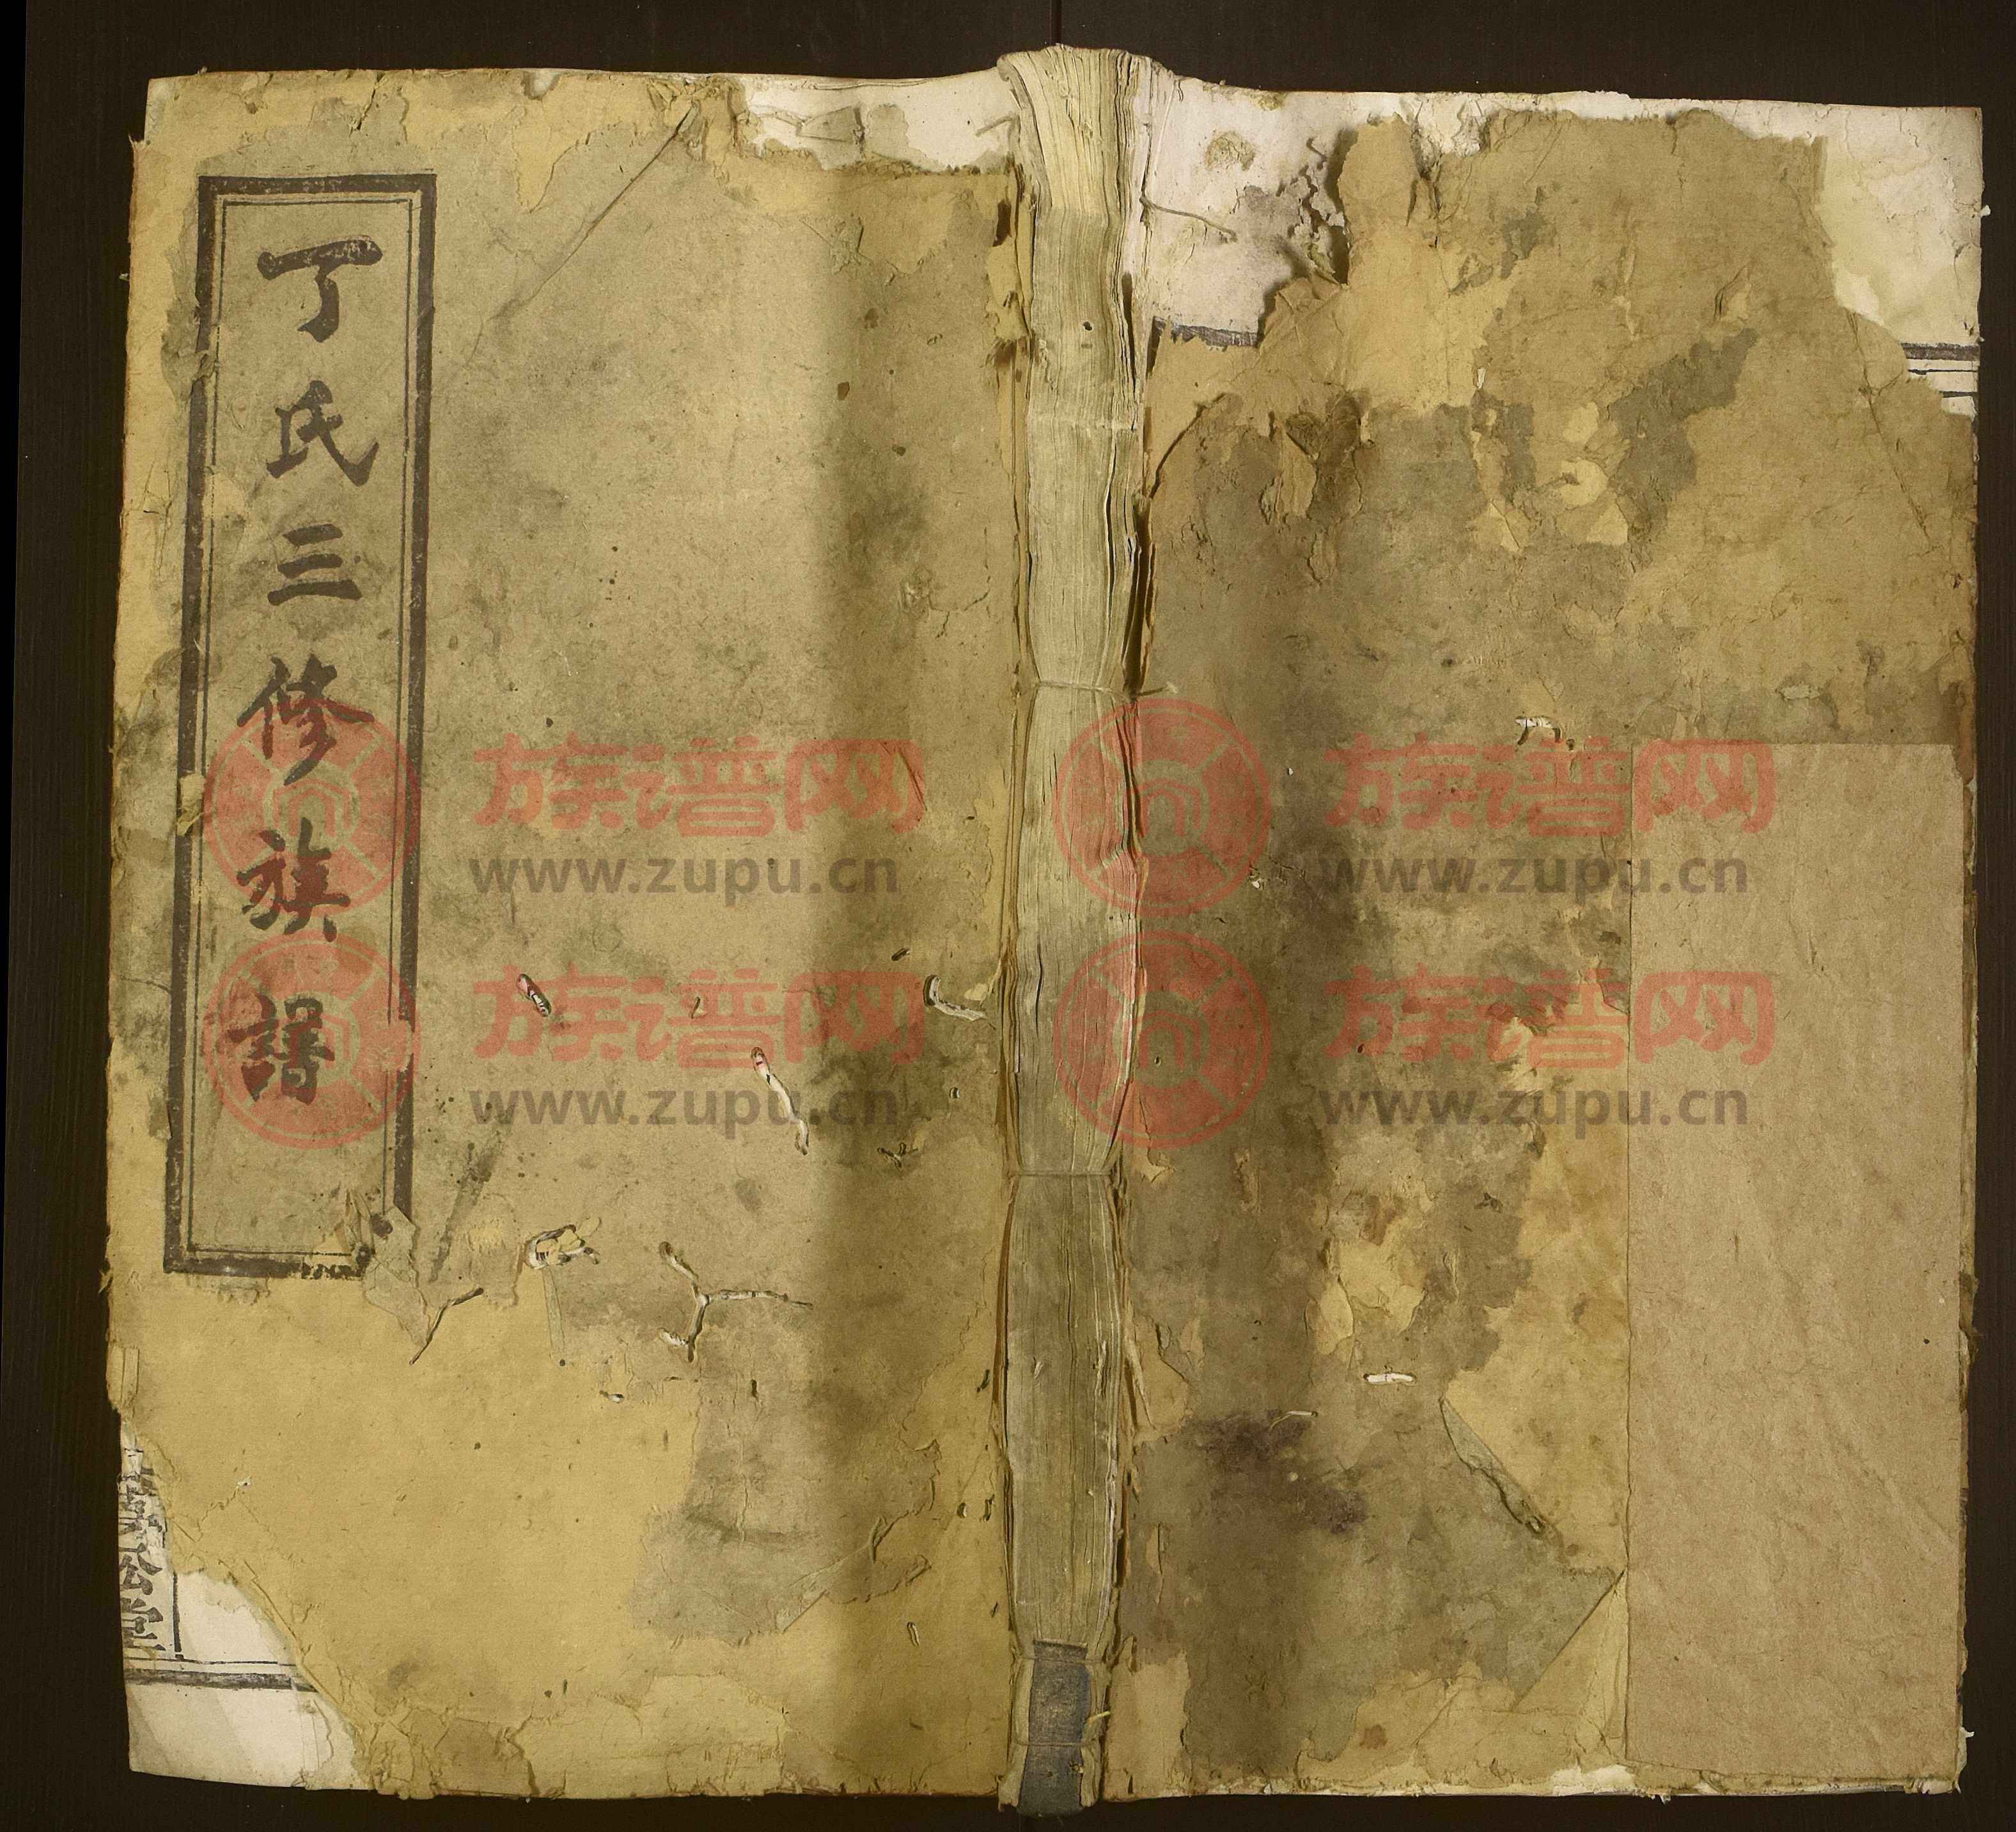 丁氏三修族譜
族谱网
www.zupu.cn
族谱网
www.zupu.cn
族谱网
www.zupu.cn
族谱网
www.zupu.cn